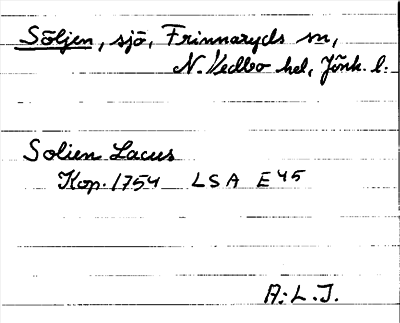 Söljen, sjö, Frinnaryds sn,
N. Vedbo hd, Jönk. l.
Solien Lacus
Kop. 1754 LSA E45
A.L.J.